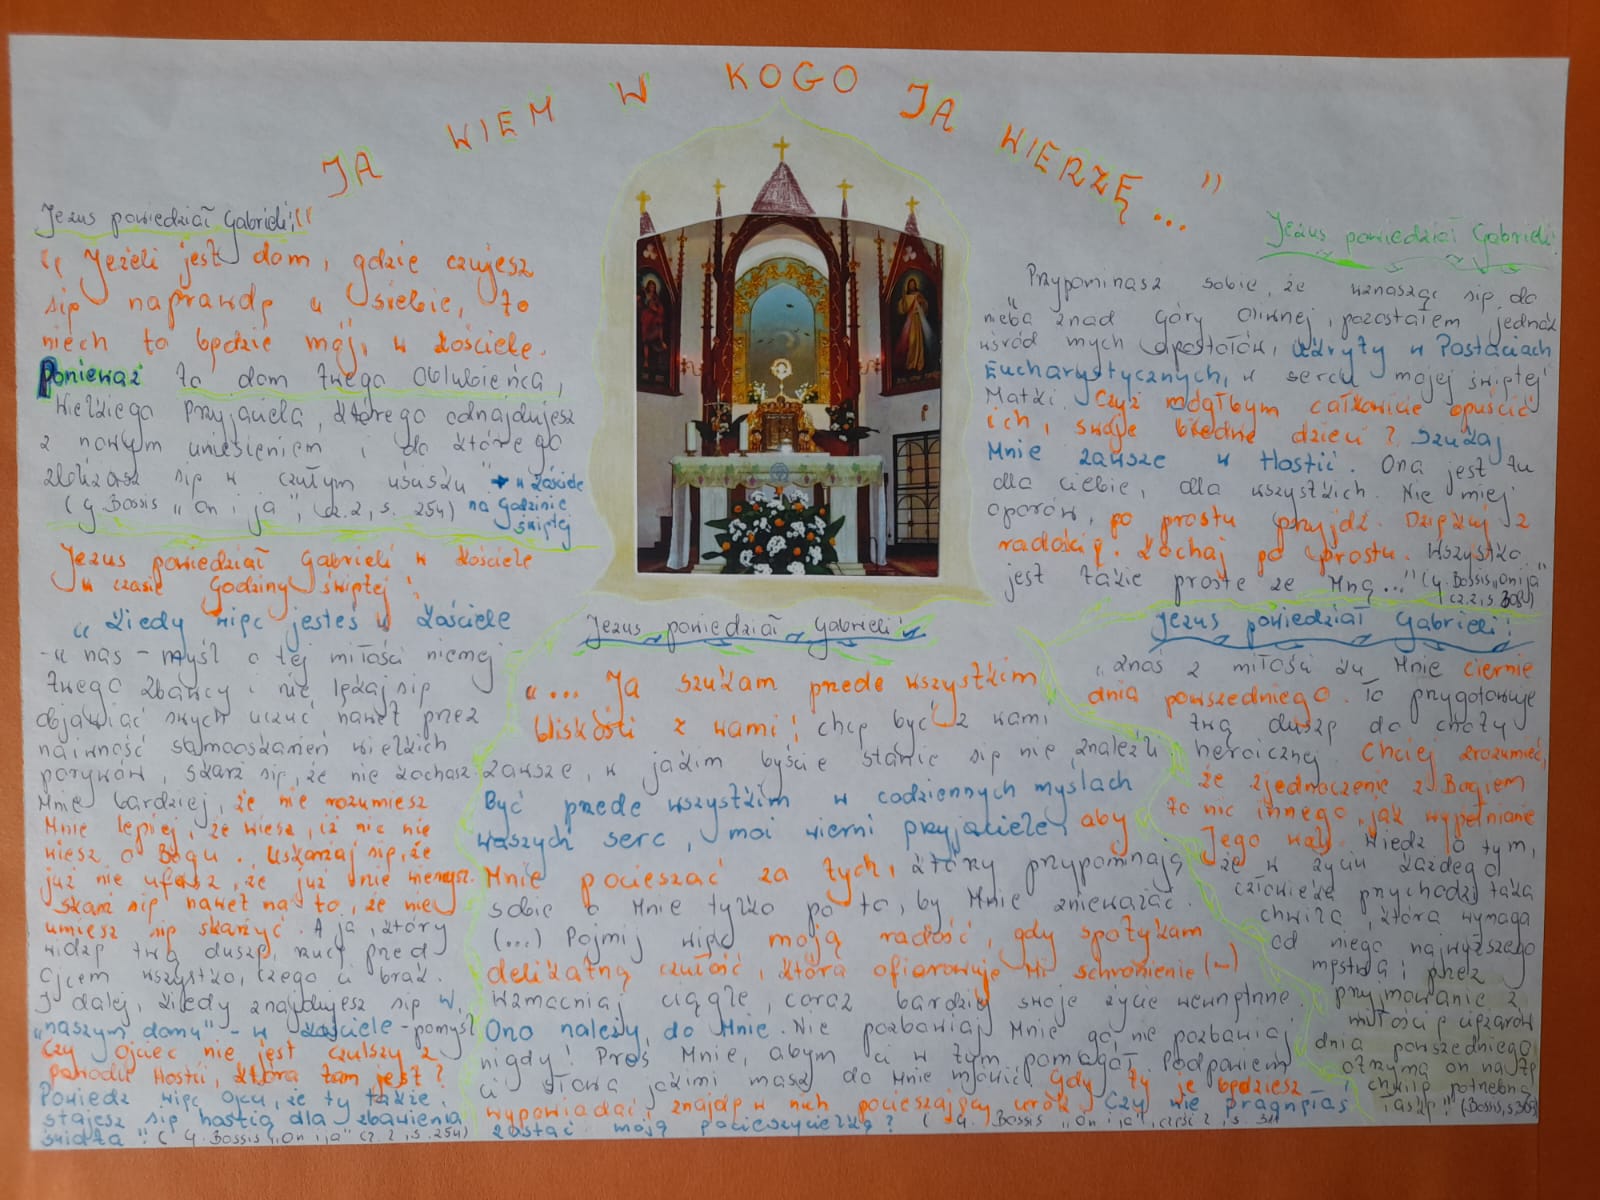 JA WIEM W KOGO JA WIERZĘ..."
Jezus powiedział Gabrieli:
"Jeżeli jest dom, gdzie czujesz
się naprawdę u siebie, to
niech to będzie mój, w kościele.
Ponieważ to dom twego Oblubieńca,
Wielkiego Przyjaciela, którego odnajdujesz
z nowym uniesieniem i do którego
zbliżasz się w czułym uścisku" → w kościele
(G. Bossis "On i ja", cz. 2, s. 254) na Godzinie
świętej
Jezus powiedział Gabrieli w kościele
w czasie Godziny świętej:
"Kiedy więc jesteś w kościele
- u nas - myśl o tej miłości niemej
twego Zbawcy i nie lękaj się
objawiać swych uczuć nawet przez
naiwność samooskarżeń wielkich
porywów, skarż się, że nie kochasz
Mnie bardziej, że nie rozumiesz
Mnie lepiej, że wiesz, iż nic nie
wiesz o Bogu. Uskarżaj się, że
już nie ufasz, że już nie wierzysz.
Skarż się nawet na to, że nie
umiesz się skarżyć. A ja, który
widzę twą duszę, rzucę przed
Ojcem wszystko, czego ci brak.
I dalej, kiedy znajdujesz się w
"naszym domu" - w kościele - pomyśl
Czy Ojciec nie jest czulszy z
powodu Hostii, która tam jest?
Powiedz więc Ojcu, że ty także
stajesz się hostią dla zbawienia
świata" (G. Bossis "On i ja" cz. 2, s. 254)
Jezus powiedział Gabrieli:
"... Ja szukam przede wszystkim
bliskości z wami; chcę być z wami
zawsze, w jakim byście stanie się nie znaleźli
Być przede wszystkim w codziennych myślach
waszych serc, moi wierni przyjaciele, aby
Mnie pocieszać za tych, którzy przypominają
sobie o Mnie tylko po to, by Mnie znieważać.
(...) Pojmij więc moją radość, gdy spotykam
delikatną czułość, która ofiarowuje Mi schronienie (...)
Wzmacniaj ciągle, coraz bardziej swoje życie wewnętrzne.
Ono należy do Mnie. Nie pozbawiaj Mnie go, nie pozbawiaj
nigdy! Proś Mnie, abym ci w tym pomagał. Podpowiem
ci słowa jakimi masz do Mnie mówić. Gdy ty je będziesz
wypowiadać, znajdę w nich pocieszający urok. Czy nie pragniesz
zostać moją pocieszycielką? (G. Bossis "On i ja", część 2, s. 321
Jezus powiedział Gabrieli:
"Przypominasz sobie, że wznosząc się do
nieba znad Góry Oliwnej, pozostałem jednak
wśród mych apostołów, ukryty w Postaciach
Eucharystycznych, w sercu mojej świętej
Matki. Czyż mógłbym całkowicie opuścić
ich, swoje biedne dzieci? Szukaj
Mnie zawsze w Hostii. Ona jest tu
dla ciebie, dla wszystkich. Nie miej
oporów, po prostu przyjdź. Dziękuj z
radością. Kochaj po prostu. Wszystko
jest takie proste ze Mną..." (G. Bossis "On i ja"
cz. 2, s. 309)
Jezus powiedział Gabrieli:
"Znoś z miłości ku Mnie ciernie
dnia powszedniego. To przygotowuje
twą duszę do cnoty
heroicznej. Chciej zrozumieć,
że zjednoczenie z Bogiem
to nic innego, jak wypełnianie
Jego woli. Wiedz o tym,
że w życiu każdego
człowieka przychodzi taka
chwila, która wymaga
od niego najwyższego
męstwa i przez
przyjmowanie z
miłością ciężarów
dnia powszedniego
otrzyma on na tę
chwilę potrzebną
łaskę" (Bossis, s 369)